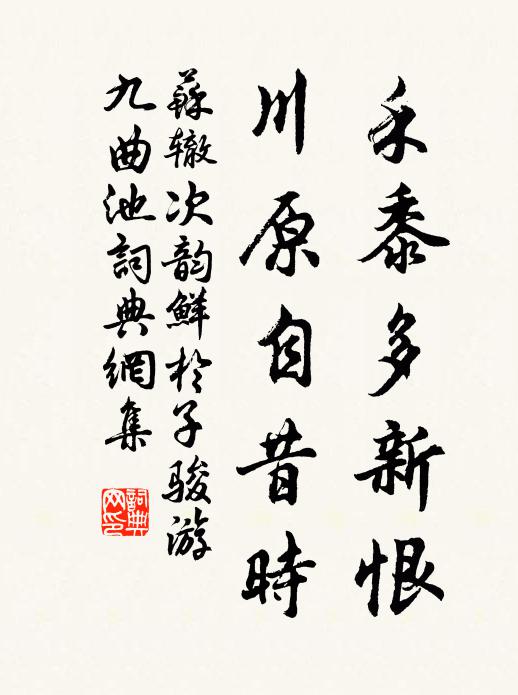 禾黍多新恨
川原自昔時
蘇辙次韵鮮於子駿游
九曲池詞典網集
詞典网印